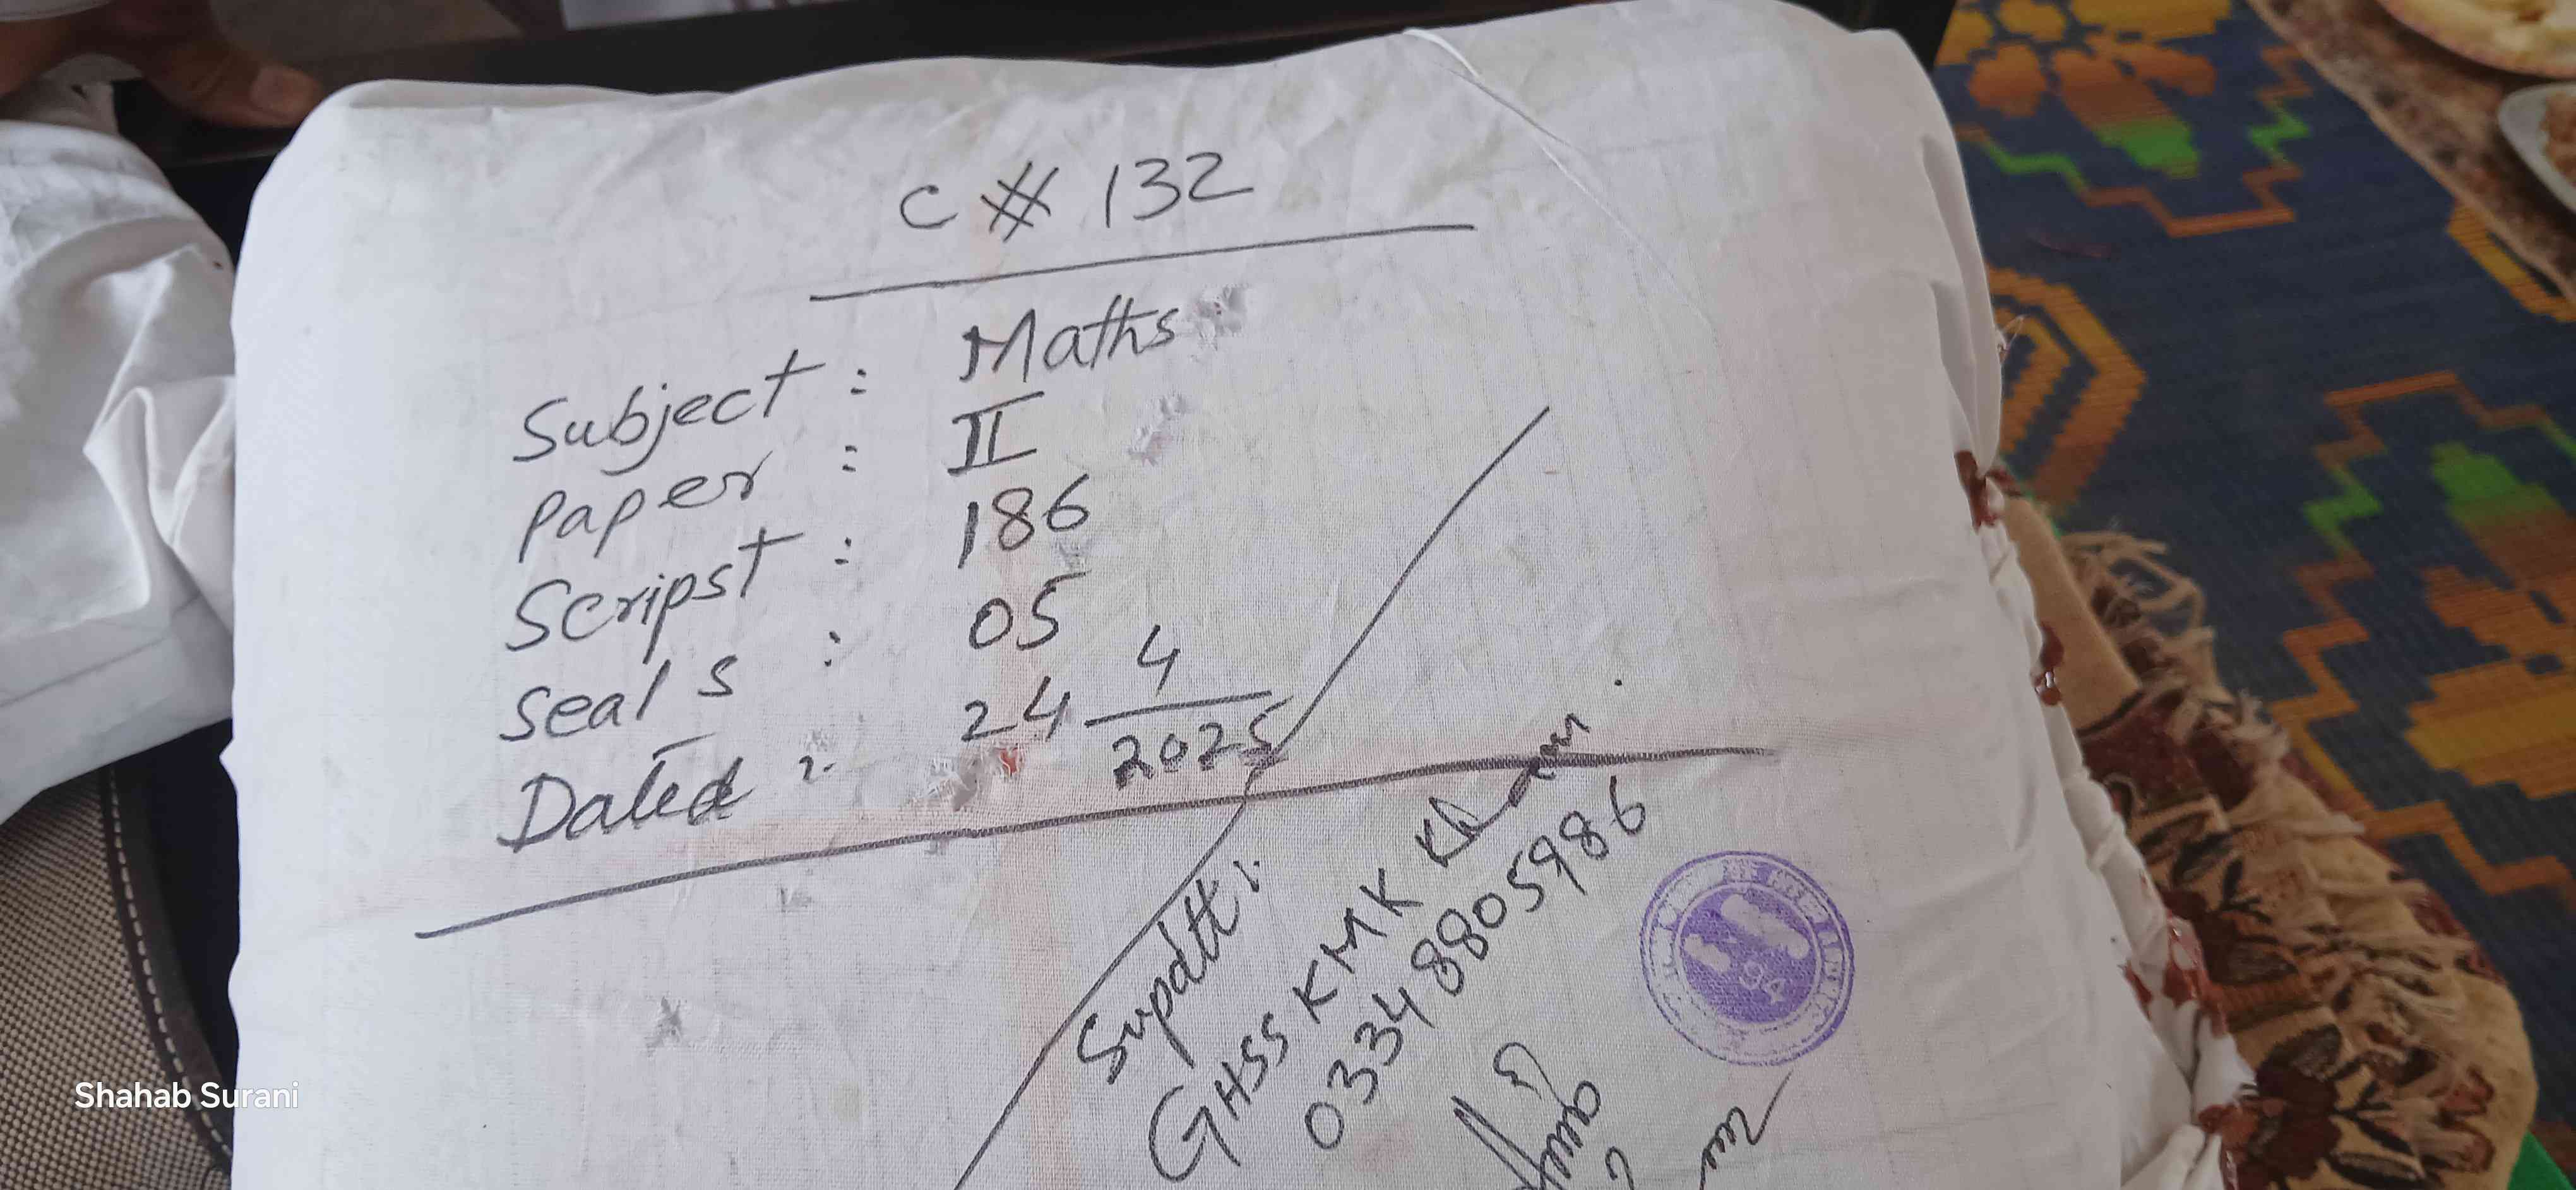 C # 132
Subject : Maths
Paper : II
Scripst : 186
Seals : 05
Dated : 24 4/2025
Supdtt:
GHSS KMK Khan
0334 8805986
94
Shahab Surani